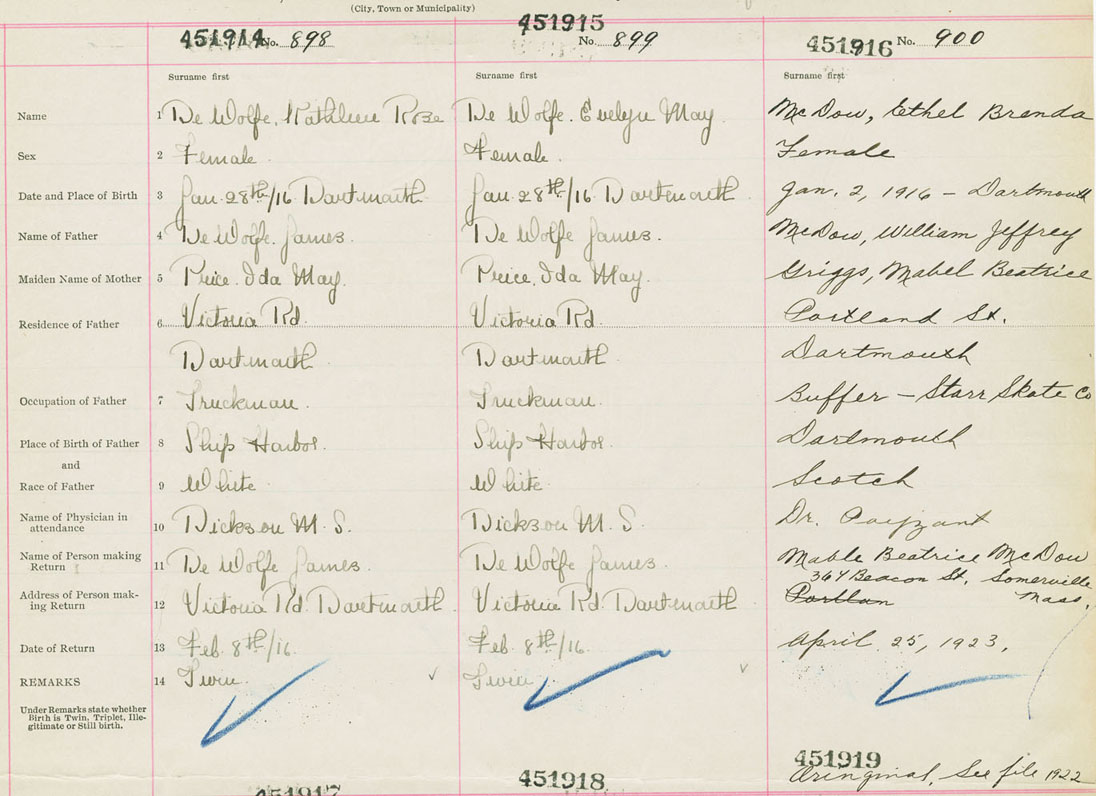 (City, Town or Municipality)
451914 No. 898
451915 No. 899
451916 No. 900
Surname first Surname first Surname first
Name 1 De Wolfe, Kathleen Rose De Wolfe. Evelyn May McDow, Ethel Brenda
Sex 2 Female. Female. Female
Date and Place of Birth 3 Jan. 28th/16 Dartmouth Jan. 28th/16 Dartmouth Jan. 2, 1916 – Dartmouth
Name of Father 4 De Wolfe. James. De Wolfe James. McDow, William Jeffrey
Maiden Name of Mother 5 Price. Ida May. Price. Ida May. Griggs, Mabel Beatrice
Residence of Father 6 Victoria Rd. Victoria Rd. Portland St.
Dartmouth Dartmouth Dartmouth
Occupation of Father 7 Truckman. Truckman. Buffer – Starr Skate Co
Place of Birth of Father 8 Ship Harbor. Ship Harbor. Dartmouth
and
Race of Father 9 White White Scotch
Name of Physician in
attendance 10 Dickson M. S. Dickson M. S. Dr. Payzant
Name of Person making
Return 11 De Wolfe James. De Wolfe James. Mable Beatrice McDow
364 Beacon St., Somerville
Address of Person mak-
ing Return 12 Victoria Rd. Dartmouth Victoria Rd. Dartmouth Mass.
Date of Return 13 Feb. 8th/16. Feb. 8th/16. April 25, 1923.
REMARKS 14 Twin. Twin.
Under Remarks state whether
Birth is Twin, Triplet, Ille-
gitimate or Still birth.
451919
Oringinal, See file 1922
451917 451918